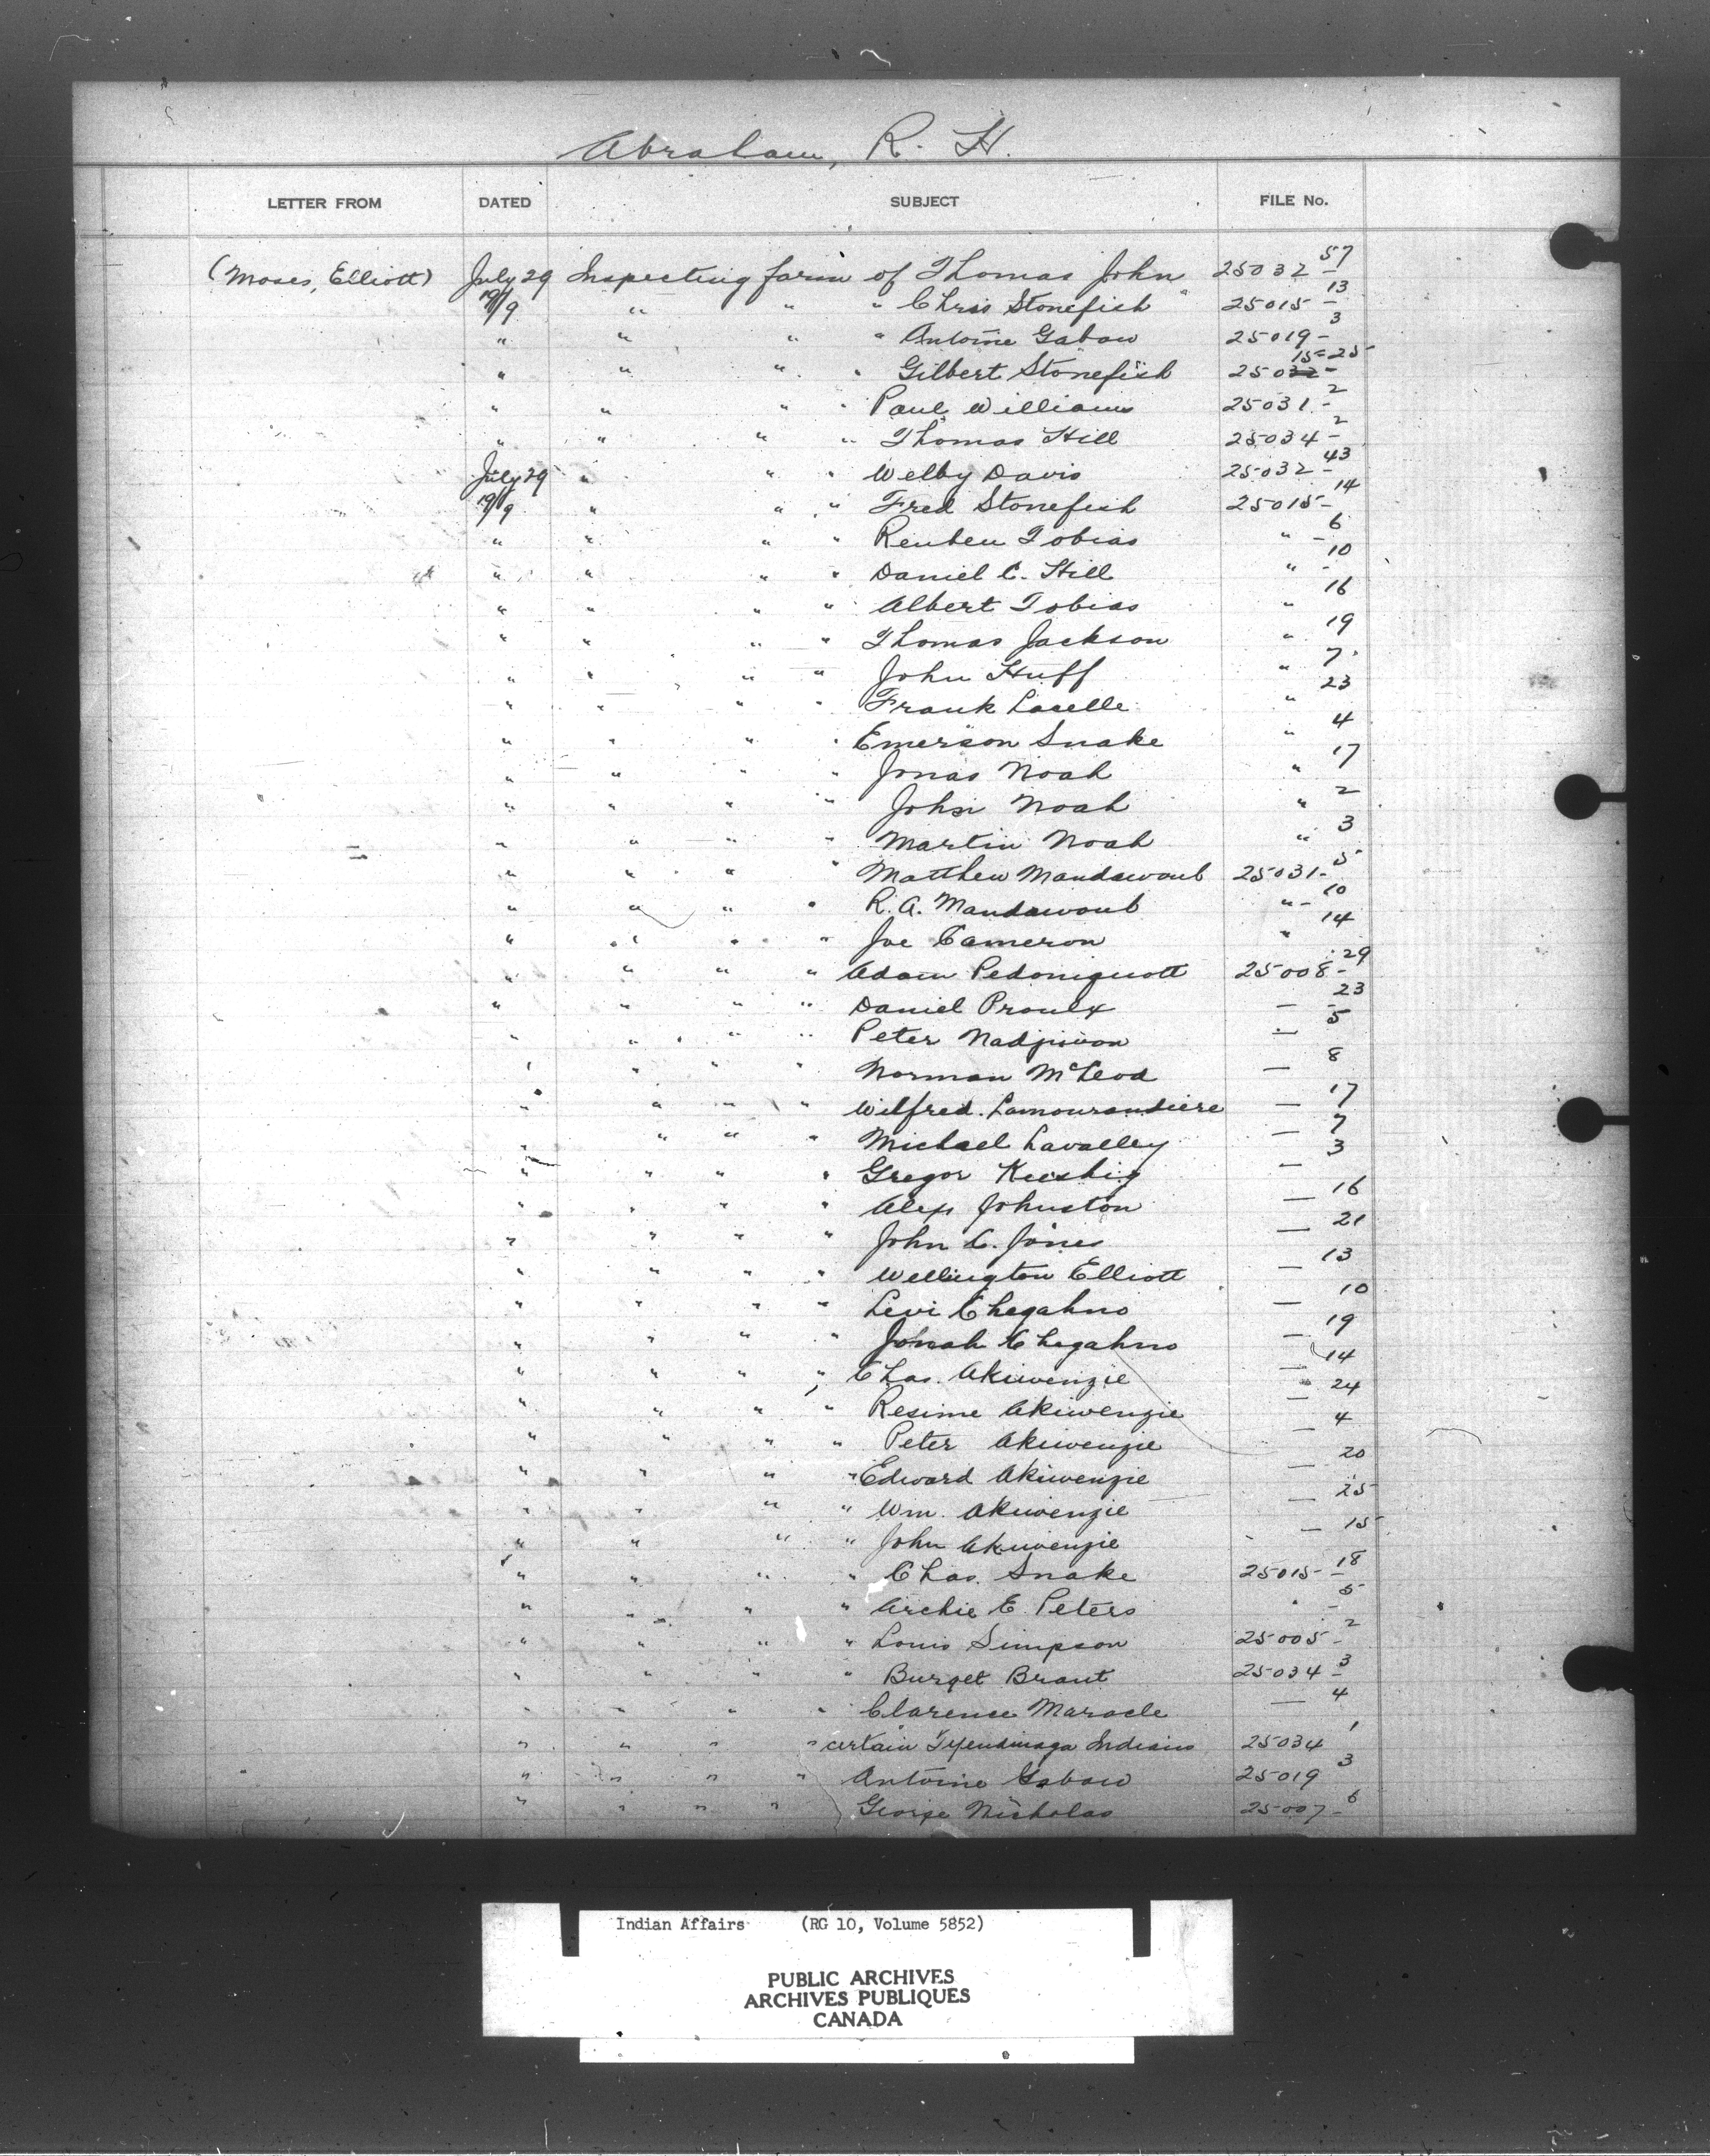 Abraham, R. H.
LETTER FROM DATED SUBJECT FILE No.
(Moses, Elliott) July 29 Inspecting farm of Thomas John 25032-57
19/9 " " " Chris Stonefish 25015-13
" " " " Antoine Gabow 25019-3
" " " " Gilbert Stonefish 25015-25
" " " " Paul Williams 25031-2
" " " " Thomas Hill 25034-2
July 29 " " " Welby Davis 25032-43
19/9 " " " Fred Stonefish 25015-14
" " " " Reuben Tobias " - 6
" " " " Daniel C. Hill " - 10
" " " " Albert Tobias " 16
" " " " Thomas Jackson " 19
" " " " John Huff " 7
" " " " Frank Lacelle " 23
" " " " Emerson Snake " 4
" " " " Jonas Noah " 17
" " " " John Noah " 2
" " " " Martin Noah " 3
" " " " Matthew Mandawoub 25031-5
" " " " R. A. Mandawoub " - 10
" " " " Joe Cameron " 14
" " " " Adam Pedoniquott 25008-29
" " " " Daniel Proulx — - 23
" " " " Peter Nadjiwon — 5
" " " " Norman McLeod — 8
" " " " Wilfred Lamourandiere — 17
" " " " Michael Lavalley — 7
" " " " Gregor Keeshig — 3
" " " " Alex Johnston — 16
" " " " John C. Jones — 21
" " " " Wellington Elliott — 13
" " " " Levi Chegahno — 10
" " " " Jonah Chegahno — 19
" " " " Chas. Akiwenzie — 14
" " " " Resime Akiwenzie — 24
" " " " Peter Akiwenzie — 4
" " " " Edward Akiwenzie — 20
" " " " Wm. Akiwenzie — 25
" " " " John Akiwenzie — 15
" " " " Chas. Snake 25015-18
" " " " Archie E. Peters " - 5
" " " " Louis Simpson 25005-2
" " " " Burget Brant 25034-3
" " " " Clarence Maracle — 4
" " " " certain Tyendinaga Indians 25034 1
" " " " Antoine Gabow 25019 3
" " " " George Nicholas 25007-6
Indian Affairs (RG 10, Volume 5852)
PUBLIC ARCHIVES
ARCHIVES PUBLIQUES
CANADA